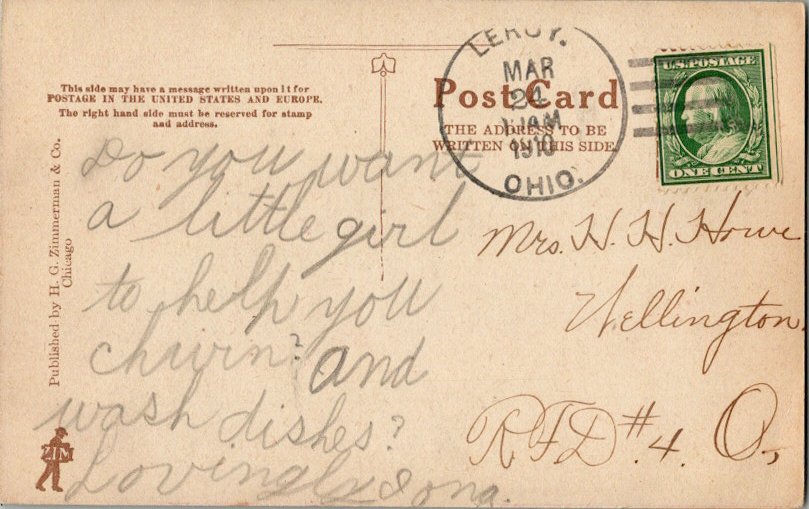 This side may have a message written upon it for
POSTAGE IN THE UNITED STATES AND EUROPE.
The right hand side must be reserved for stamp
and address.
Post Card
THE ADDRESS TO BE
WRITTEN ON THIS SIDE.
LEROY.
MAR
24
11AM
1910
OHIO.
U.S. POSTAGE
ONE CENT
Published by H. G. Zimmerman & Co.
Chicago
ZIM
Do you want
a little girl
to help you
churin? and
wash dishes?
Lovingly Iona.
Mrs. H. H. Howe
Wellington
RFD #4. O,